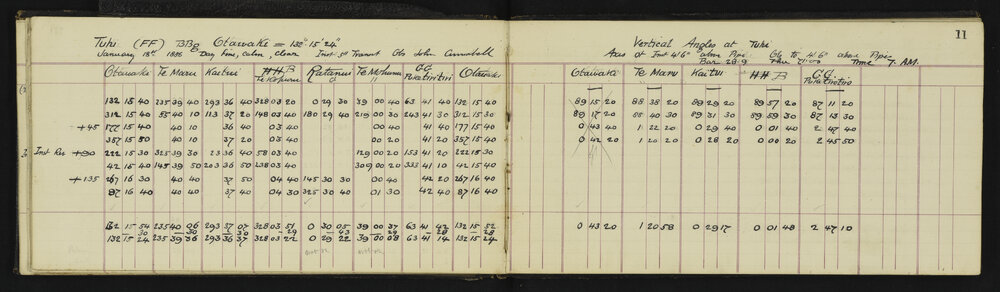 11
Tuhi (FF) BBg Otawake = 132° 15' 24"
January 18th 1896 Day Fine, Calm, Clear Inst 5" Transit Obs John Campbell
Otawake Te Maru Kaitui HH B Ratanui Te Mohunui GG Otawake
132 15 40 235 39 40 293 36 40 328 03 20 0 29 30 39 00 40 63 41 40 132 15 40
312 15 40 55 40 10 113 37 20 148 03 40 180 29 40 219 00 30 243 41 30 312 15 30
+45 177 15 40 40 10 36 40 03 40 00 40 41 40 177 15 40
357 15 50 40 10 37 20 03 40 00 20 41 20 357 15 40
Inst Res +90 222 15 30 325 39 30 23 36 40 58 03 40 129 00 20 153 41 20 222 15 30
42 15 40 145 39 50 203 36 50 238 03 40 309 00 20 333 41 10 42 15 40
+135 267 16 30 40 40 37 50 04 40 145 30 30 00 40 42 20 267 16 40
87 16 40 40 40 37 40 04 30 325 30 40 01 30 42 40 87 16 40
132 15 54 235 40 06 293 37 07 328 03 51 0 30 05 39 00 37 63 41 42 132 15 52
30 30 30 29 43 29 28 28
132 15 24 235 39 36 293 36 37 328 03 22 0 29 22 39 00 08 63 41 14 132 15 24
Vertical Angles at Tuhi
Axis at Inst 4'6" above Pipe Obj to 4'6" above Pipe
Bar 28.9 Ther 71.00 Time 7 AM.
Otawake Te Maru Kaitui HH B GG
89 15 20 88 38 20 89 29 20 89 57 20 87 11 20
89 17 20 88 40 30 89 31 30 89 59 30 87 13 30
0 43 40 1 22 20 0 29 40 0 01 40 2 47 40
0 42 20 1 20 20 0 28 20 0 00 20 2 45 50
0 43 20 1 20 58 0 29 17 0 01 48 2 47 10